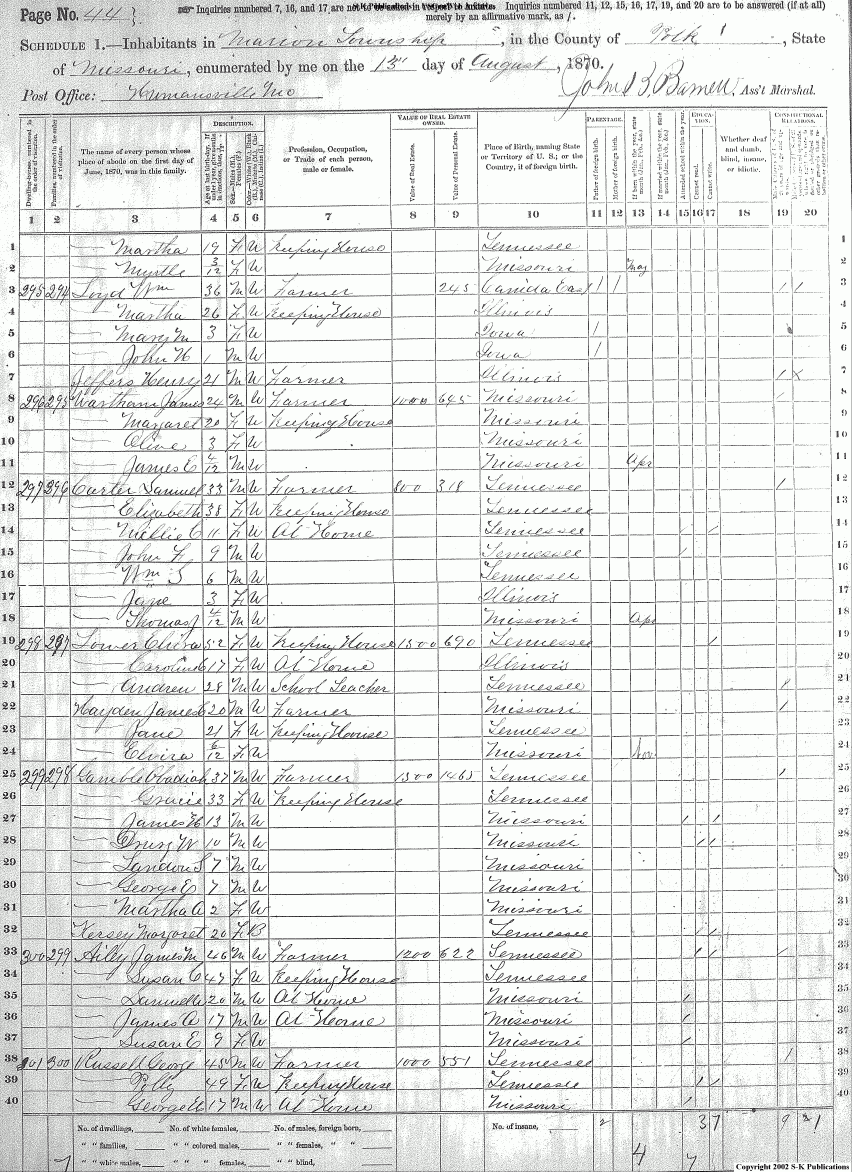 Page No. 443
Inquiries numbered 7, 16, and 17 are not to be asked in respect to infants. Inquiries numbered 11, 12, 15, 16, 17, 19, and 20 are to be answered (if at all) merely by an affirmative mark, as /.
SCHEDULE 1.—Inhabitants in Marion Township, in the County of Polk, State
of Missouri, enumerated by me on the 13 day of August, 1870.
Post Office: Humansville Mo
Ass't Marshal.
DESCRIPTION. VALUE OF REAL ESTATE OWNED. PARENTAGE. EDUCATION. CONSTITUTIONAL RELATIONS.
Dwelling-houses, numbered in the order of visitation. Families, numbered in the order of visitation. The name of every person whose place of abode on the first day of June, 1870, was in this family. Profession, Occupation, or Trade of each person, male or female. Value of Real Estate. Value of Personal Estate. Place of Birth, naming State or Territory of U. S.; or the Country, if of foreign birth. Father of foreign birth. Mother of foreign birth. Attended school within the year. Cannot read. Cannot write. Whether deaf and dumb, blind, insane, or idiotic.
1 2 3 4 5 6 7 8 9 10 11 12 13 14 15 16 17 18 19 20
1 — Martha 19 F W Keeping House Tennessee 1
2 — Myrtle 3/12 F W Missouri May 2
3 295 294 Loyd Wm 36 M W Farmer 245 Canida East / / / / 3
4 — Martha 26 F W Keeping House Illinois 4
5 — Mary M 3 F W Iowa / 5
6 — John W 1 M W Iowa / 6
7 Jeffers Henry 21 M W Farmer Illinois / X 7
8 296 295 James 24 M W Farmer 1000 645 Missouri / 8
9 — Margaret 20 F W Keeping House Missouri 9
10 — Olive 3 F W Missouri 10
11 — James E 4/12 M W Missouri Apr 11
12 297 296 Carter Samuel 33 M W Farmer 800 318 Tennessee / 12
13 — Elizabeth 38 F W Keeping House Tennessee 13
14 — Millie C 11 F W At Home Tennessee / / 14
15 — John F 9 M W Tennessee / 15
16 — Wm S 6 M W Tennessee 16
17 — Jane 3 F W Illinois 17
18 — Thomas J 4/12 M W Missouri Apr 18
19 298 297 Lower 52 F W Keeping House 1500 690 Tennessee / 19
20 — Caroline 17 F W At Home Illinois 20
21 — Andrew 28 M W School Teacher Tennessee / 21
22 Hayden James 20 M W Farmer Missouri / 22
23 — Jane 21 F W Keeping House Tennessee 23
24 — Elvira 6/12 F W Missouri Nov 24
25 299 298 Gamble Obadiah 37 M W Farmer 1500 Tennessee / 25
26 — Gracie 33 F W Keeping House Tennessee 26
27 — James H 13 M W Missouri / / 27
28 — Drury W 10 M W Missouri / / 28
29 — Landon S 7 M W Missouri 29
30 — George E 7 M W Missouri 30
31 — Martha A 2 F W Missouri 31
32 Kersey Margaret 20 F B Tennessee / / 32
33 300 299 Ailey James M 46 M W Farmer 1200 622 Tennessee / / / 33
34 — Susan C 47 F W Keeping House Tennessee 34
35 — Samuel 20 M W At Home Missouri / 35
36 — James A 17 M W At Home Missouri / 36
37 — Susan E 9 F W Missouri / 37
38 301 300 Russell George 45 M W Farmer 1000 551 Tennessee / 38
39 — Polly 49 F W Keeping House Tennessee / / 39
40 — George 17 M W At Home Missouri / 40
No. of dwellings, No. of white females, No. of males, foreign born, No. of insane, 2 37 9 1
" " families, " " colored males, " " females, " " 4
" " white males, " " " females, " " blind, 7
Copyright 2002 S-K Publications